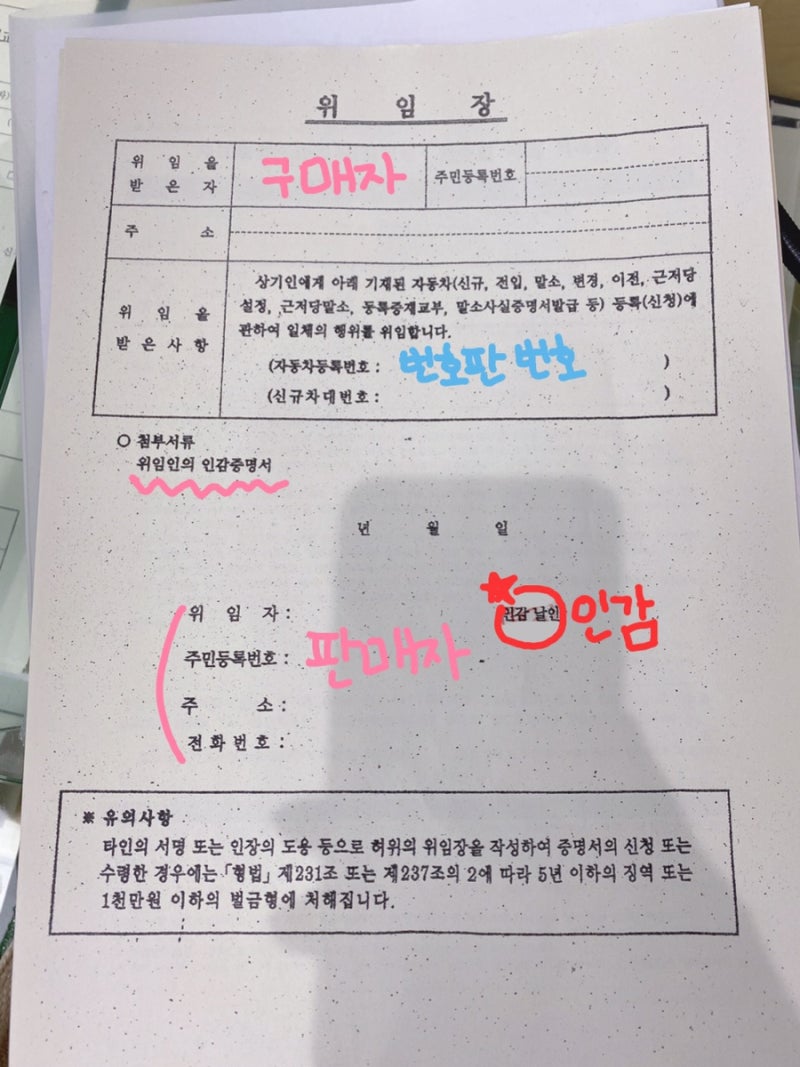 위 임 장
위 임 을
받 은 자
구매자
주민등록번호
주 소
위 임 을
받 은 사 항
상기인에게 아래 기재된 자동차(신규, 전입, 말소, 변경, 이전, 근저당
설정, 근저당말소, 등록증재교부, 말소사실증명서발급 등) 등록(신청)에
관하여 일체의 행위를 위임합니다.
(자동차등록번호 : 번호판 번호 )
(신규차대번호 : )
○ 첨부서류
위임인의 인감증명서
년 월 일
위 임 자 : 인감 날인 인감
주민등록번호 : 판매자
주 소 :
전 화 번 호 :
※ 유의사항
타인의 서명 또는 인장의 도용 등으로 허위의 위임장을 작성하여 증명서의 신청 또는
수령한 경우에는 「형법」 제231조 또는 제237조의 2에 따라 5년 이하의 징역 또는
1천만원 이하의 벌금형에 처해집니다.